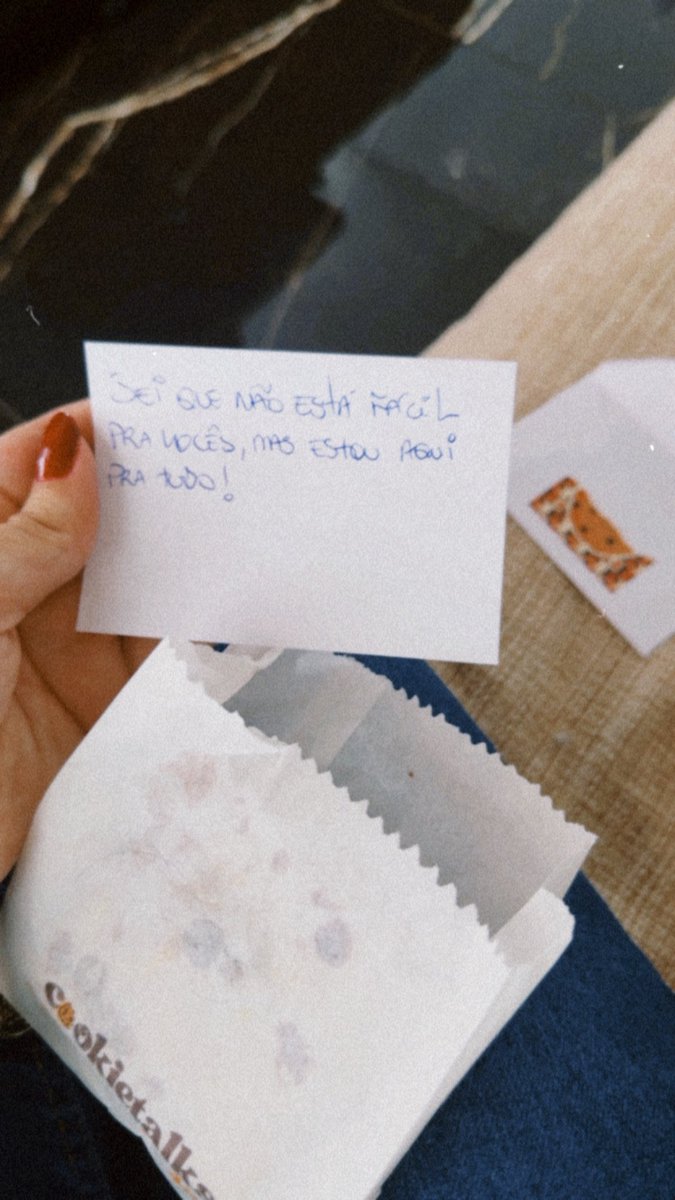 SEI QUE NÃO ESTÁ FÁCIL
PRA VOCÊS, MAS ESTOU AQUI
PRA TUDO!
cookietalks